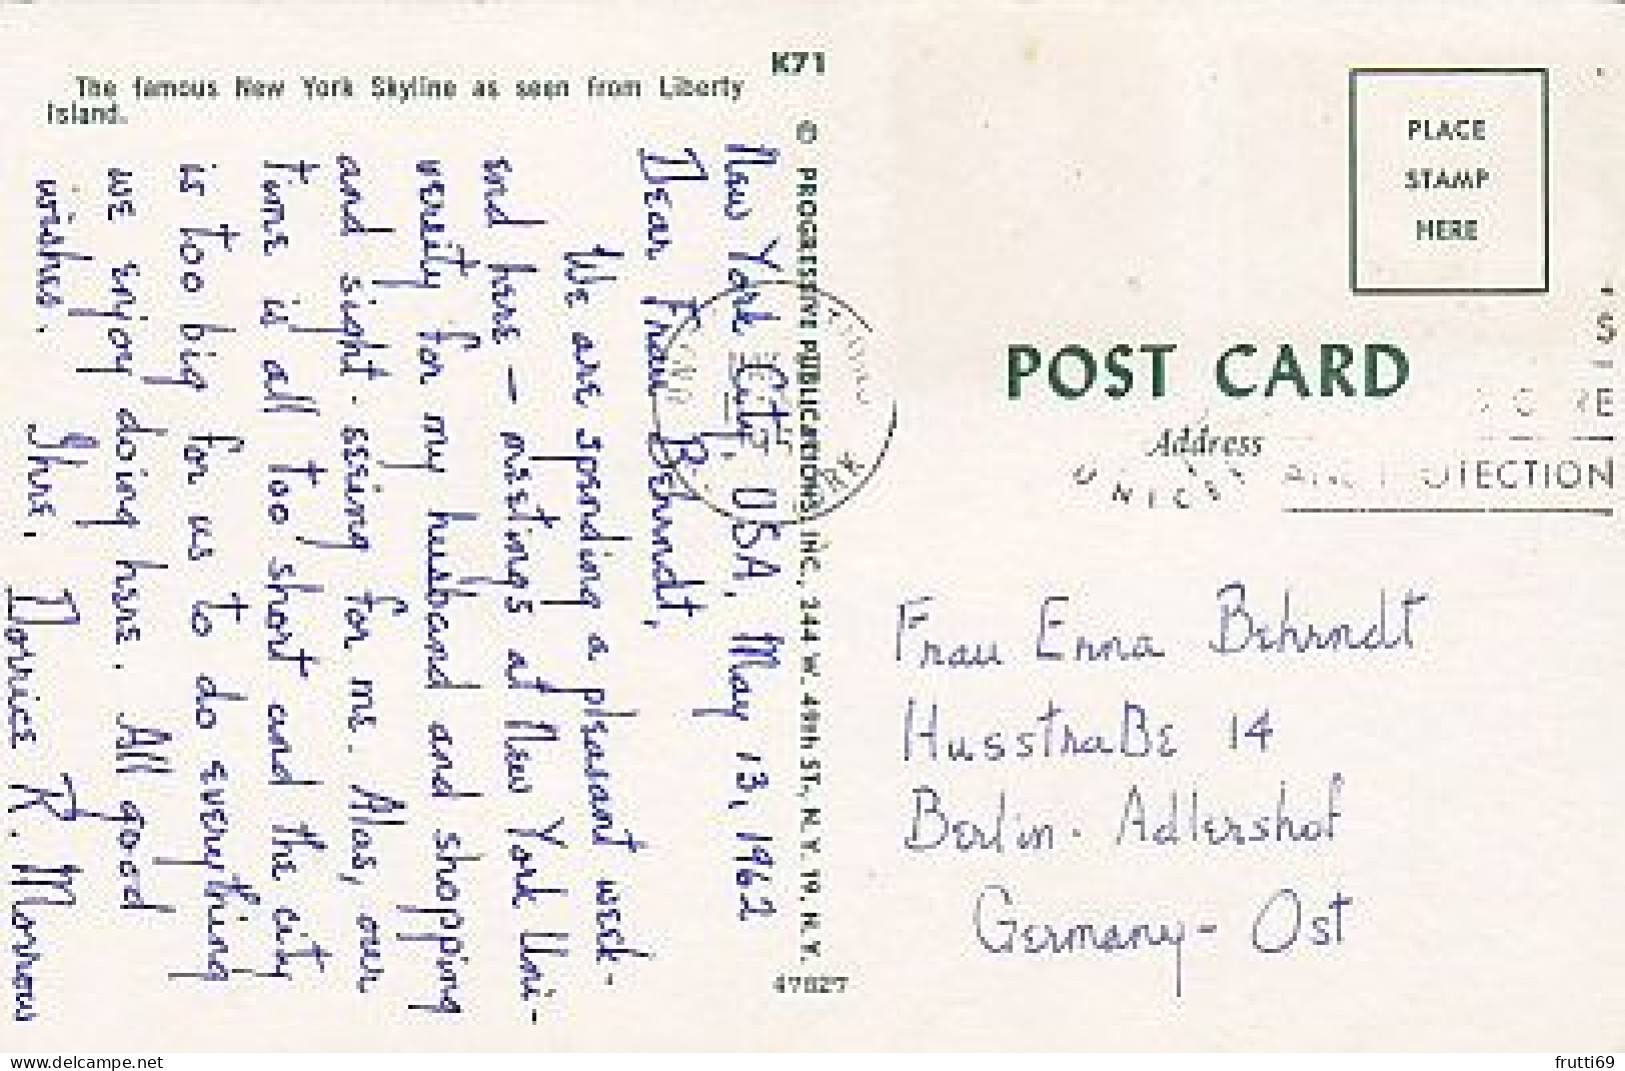 The famous New York Skyline as seen from Liberty
Island.
K71
© PROGRESSIVE PUBLICATIONS, INC., 244 W. 49th ST., N. Y. 19, N. Y.
47827
New York City, USA, May 13, 1962
Dear Frau Behrndt,
We are spending a pleasant week-
end here — meetings at New York Uni-
versity for my husband and shopping
and sight-seeing for me. Alas, our
time is all too short and the city
is too big for us to do everything
we enjoy doing here. All good
wishes.
Yours, Dorrice R. Morrow
PLACE
STAMP
HERE
POST CARD
Address
UNICEF
Frau Erna Behrndt
Husstraße 14
Berlin-Adlershof
Germany-Ost
delcampe.net
frutti69